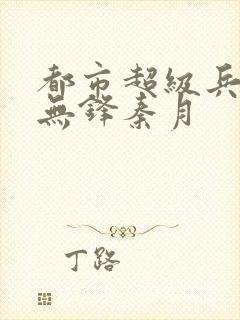 都市超級兵
無鋒秦月
丁路